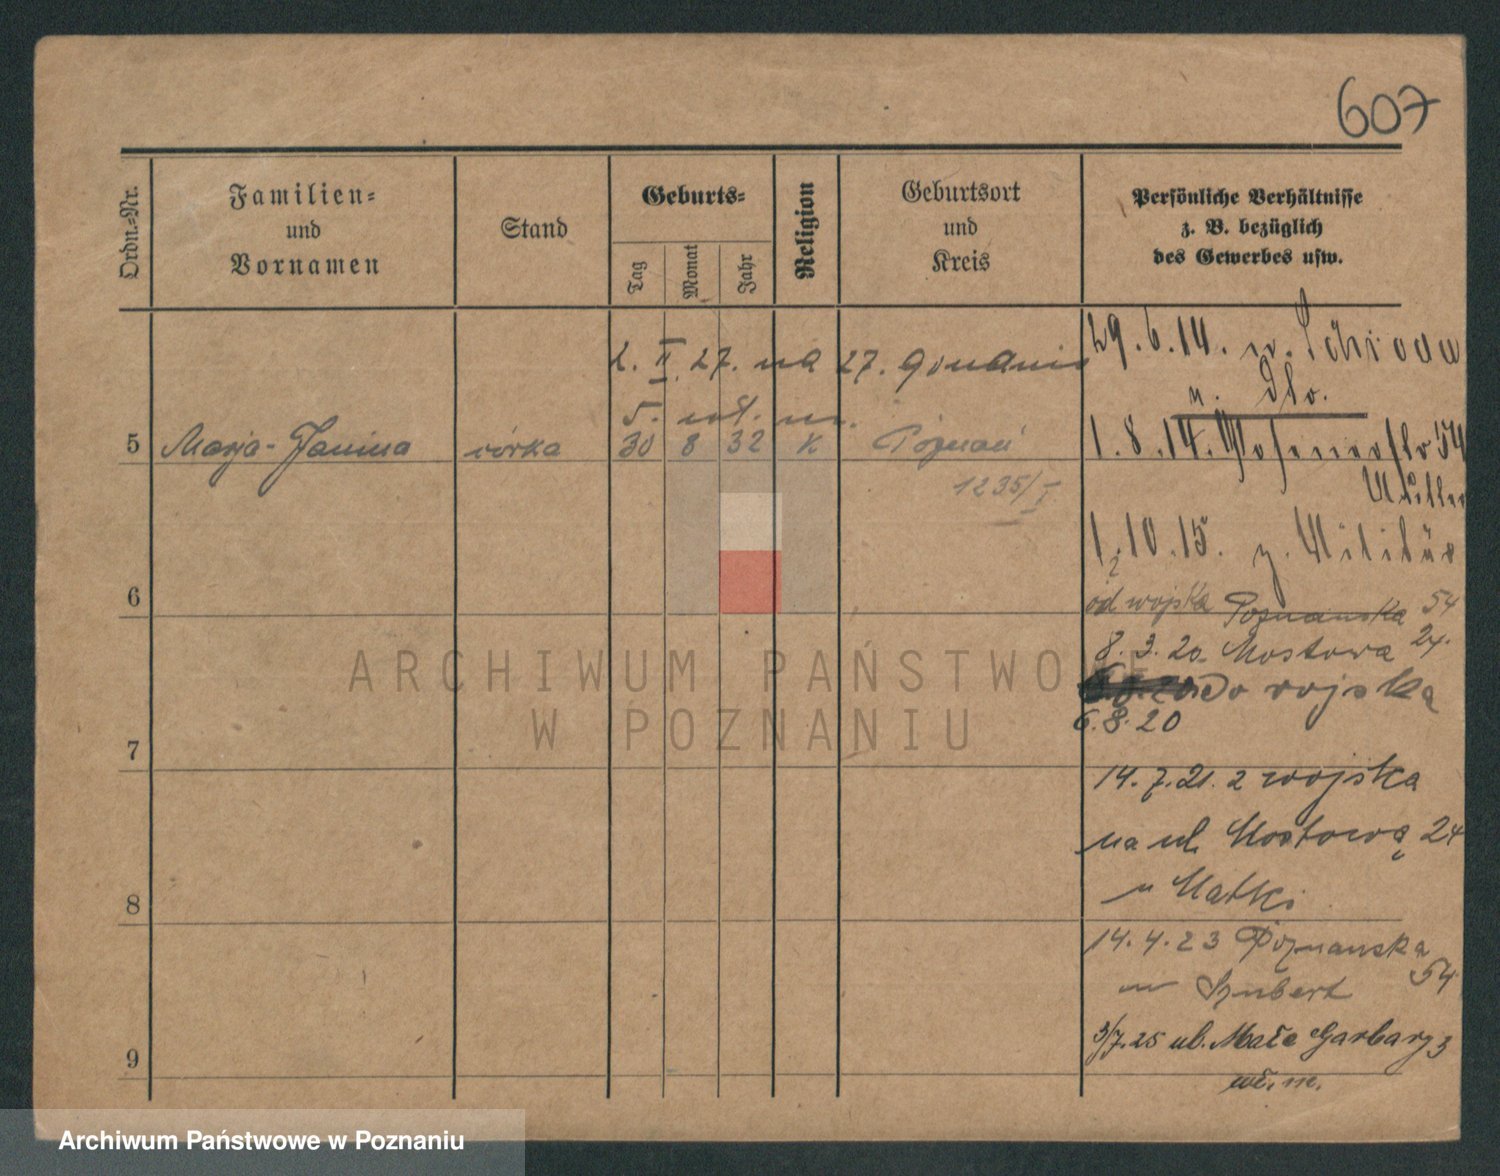 607
Ordn.=Nr.
Familien=
und
Vornamen
Stand
Geburts=
Tag
Monat
Jahr
Religion
Geburtsort
und
Kreis
Persönliche Verhältnisse
z. B. bezüglich
des Gewerbes usw.
29.6.14. n.
n. dto.
2. II. 27. na 27. grudnia
5. wł. m.
5 Marja-Janina córka 30 8 32 K Poznań
1235/I
1.8.14. 54
1.10.15. z. Militär
6
od wojska Poznańska 54
8.3.20 Mostowa 24.
do wojska
6.8.20
7
14.7.21. z wojska
na ul. Mostową 24
u Matki
8
14.4.23 Poznańska 54
Szubert
3/7.25 ul. Małe Garbary 3
wł. m.
9
ARCHIWUM PAŃSTWOWE
W POZNANIU
Archiwum Państwowe w Poznaniu